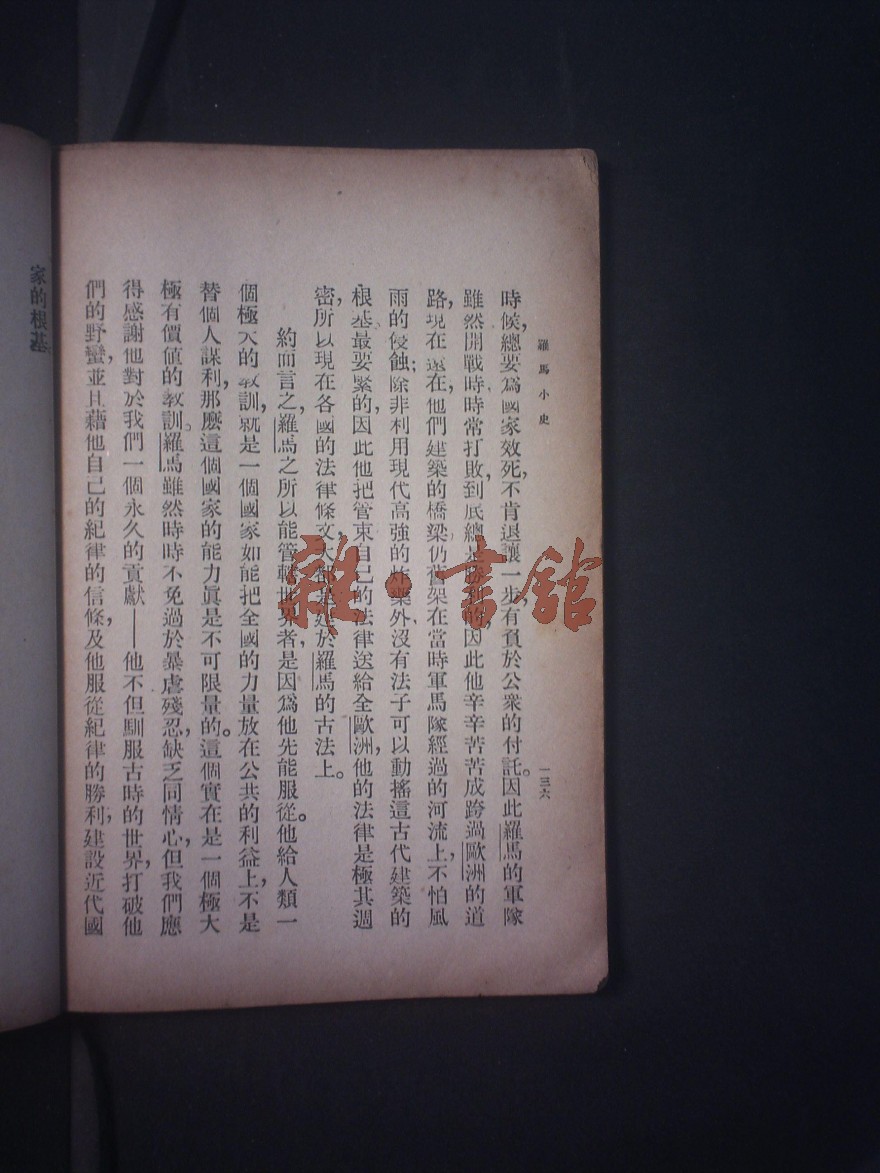 羅馬小史
一三六
時候,總要爲國家效死,不肯退讓一步,有負於公衆的付託。因此羅馬的軍隊
雖然開戰時時常打敗,到底總是勝利的。因此他辛辛苦苦成跨過歐洲的道
路,現在還在,他們建築的橋梁仍舊架在當時軍馬隊經過的河流上,不怕風
雨的侵蝕;除非利用現代高強的炸藥外,沒有法子可以動搖這古代建築的
根基。最要緊的,因此他把管束自己的法律送給全歐洲,他的法律是極其週
密,所以現在各國的法律條文大都是建於羅馬的古法上。
約而言之,羅馬之所以能管轄世界者,是因爲他先能服從。他給人類一
個極大的教訓,就是一個國家如能把全國的力量放在公共的利益上,不是
替個人謀利,那麽這個國家的能力眞是不可限量的。這個實在是一個極大
極有價値的教訓。羅馬雖然時時不免過於暴虐殘忍,缺乏同情心,但我們應
得感謝他對於我們一個永久的貢獻——他不但馴服古時的世界,打破他
們的野蠻,並且藉他自己的紀律的信條,及他服從紀律的勝利,建設近代國
家的根基
雜·書館